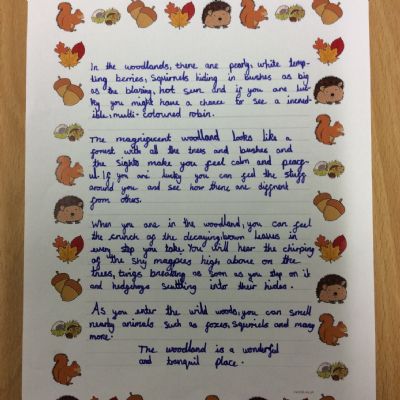 In the woodlands, there are pearly, white temp-
ting berries, Squirrels hiding in bushes as big
as the blazing, hot sun and if you are luc-
ky you might have a chance to see a incred-
ible, multi-coloured robin.
The magnificent woodland looks like a
forest with all the trees and bushes and
the sights make you feel calm and peace-
ful. If you are lucky you can feel the stuff
around you and see how there are different
from others.
When you are in the woodland, you can feel
the crunch of the decaying, brown leaves in
every step you take. You will hear the chirping
of the shy magpies high above on the
trees, twigs breaking as soon as you step on it
and hedgehogs scuttling into their hides.
As you enter the wild woods, you can smell
nearby animals such as foxes, squirrels and many
more.
The woodland is a wonderful
and tranquil place.